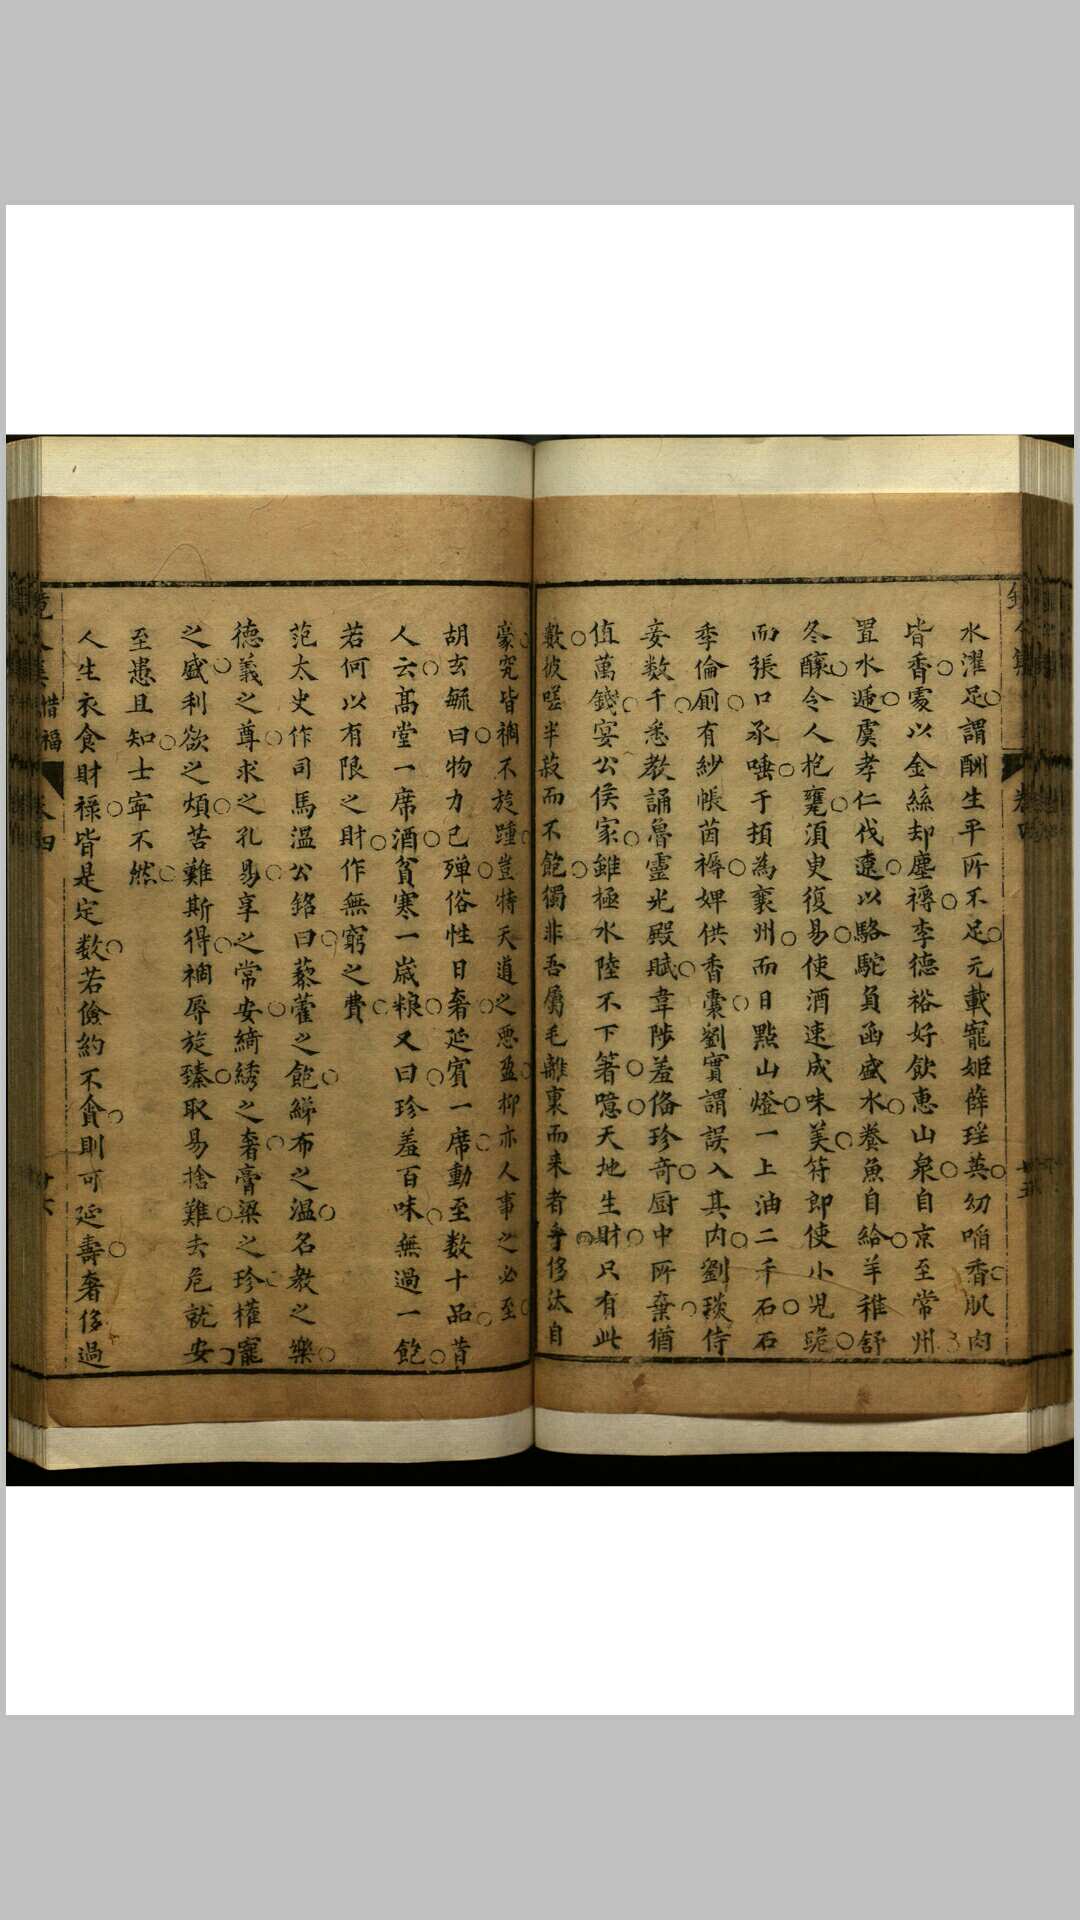 水濯足謂酬生平所不足元載寵姬薛瑤英幼啗香肌肉
皆香處以金絲却塵褥李德裕好飲惠山泉自京至常州
置水遞虞孝仁伐遼以駱駝負函盛水養魚自給羊稚舒
冬釀令人抱甕須臾復易使酒速成味美符郎使小兒跪
而張口承唾于頔為襄州而日點山燈一上油二千石石
季倫厠有紗帳茵褥婢供香囊劉寔謂誤入其内劉琰侍
妾数千悉教誦魯靈光殿賦韋陟羞俻珍竒厨中所棄猶
值萬錢宴公侯家雖極水陸不下箸噫天地生財只有此
數彼嗟半菽而不飽獨非吾屬毛離裏而来者乎侈汰自
豪究皆禍不旋踵豈特天道之惡盈抑亦人事之必至
胡玄毓曰物力已殫俗性日奢延賓一席動至数十品昔
人云髙堂一席酒貧寒一嵗粮又曰珍羞百味無過一飽
若何以有限之財作無窮之費
范太史作司馬温公銘曰藜藿之飽綈布之温名教之樂
德義之尊求之孔易享之常安綺綉之奢膏梁之珍權寵
之盛利欲之煩苦難斯得禍辱旋臻取易捨難去危就安
至愚且知士寜不然
人生衣食財禄皆是定数若儉約不貪則可延壽奢侈過
惜福